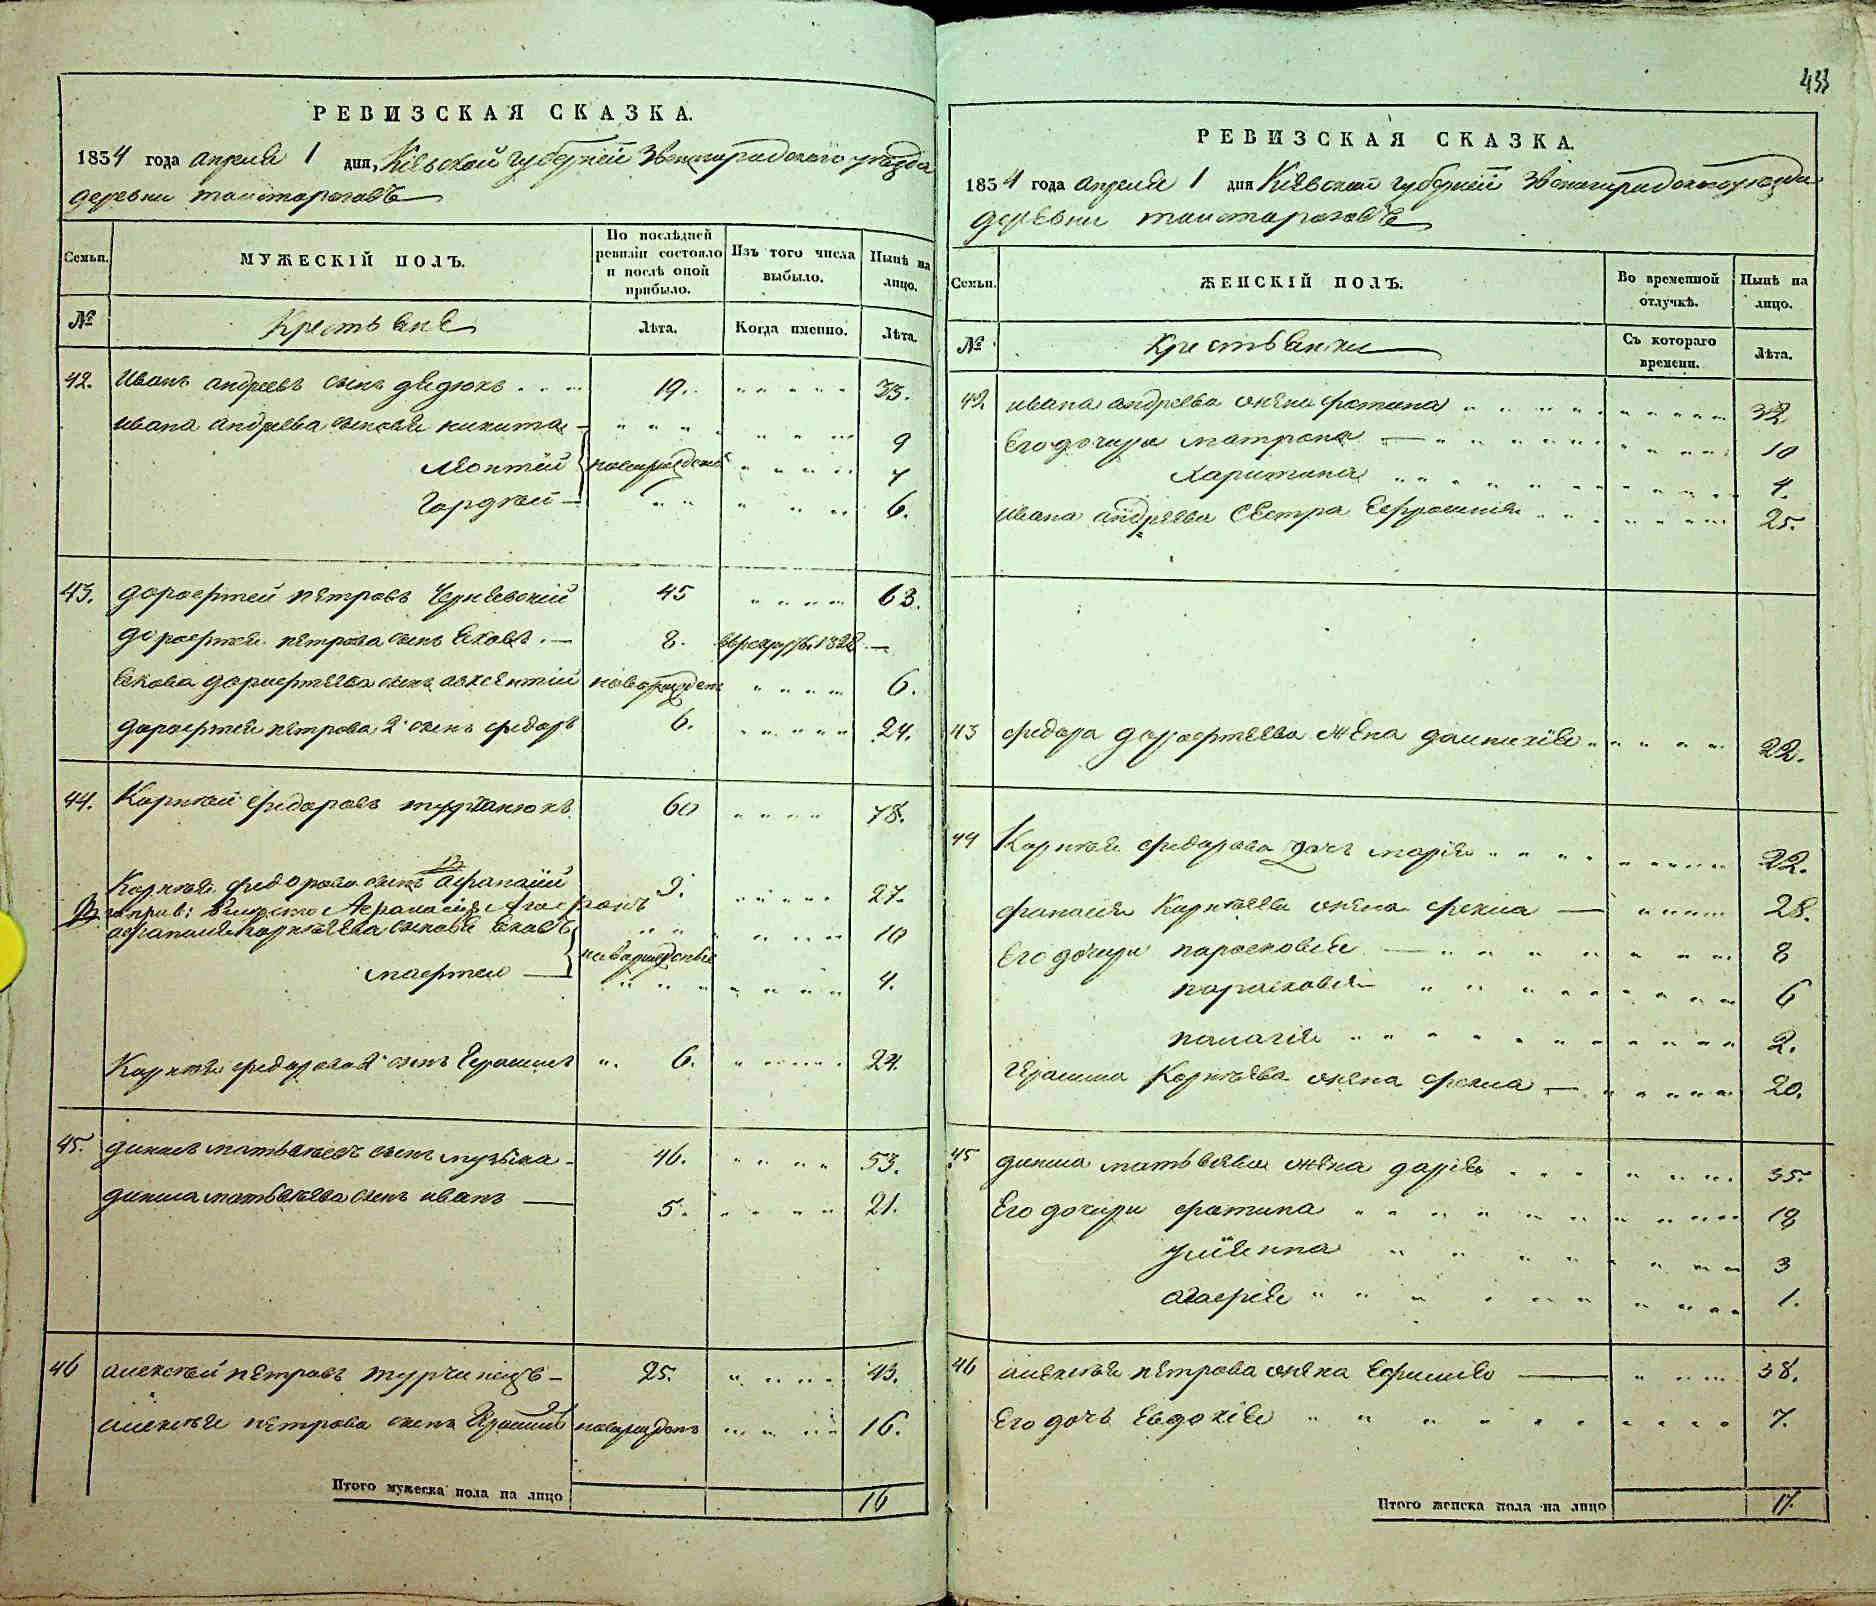 433
РЕВИЗСКАЯ СКАЗКА.
1834 года апреля 1 дня, Кіевской губерніи Звенигородского уезда
деревни
Семьи.
МУЖЕСКІЙ ПОЛЪ.
По послѣдней ревизіи состояло и послѣ оной прибыло.
Изъ того числа выбыло.
Нынѣ на лицо.
№
Крестьяне
Лѣта.
Когда именно.
Лѣта.
42. Иванъ андреевъ сынъ дедюхъ 19. 33.
Ивана андреева сыновья никита 9
Леонтій новорожденые 7
Гордѣй 6.
43. дорофтей петровъ Чернявскій 45 63.
дорофтея петрова сынъ Яковъ. 8. 1828 —
Якова дорофтеева сынъ авксентій новорожденъ 6.
дорофтея петрова 2й сынъ федоръ 6. 24.
44. Корнѣй федоровъ 60 78.
Корнѣя федорова сынъ афанасій 9. 27.
вместо Афанасія
афанасия корнѣева сыновья Яковъ 10
новорожденые
мафтей 4.
Корнѣя федорова 2й сынъ Герасимъ 6. 24.
45. матвѣевъ сынъ музыка 46. 53.
матвѣева сынъ иванъ 5. 21.
46 алексѣй петровъ 25. 43.
алексѣя петрова сынъ Герасимъ новорожденъ 16.
Итого мужеска пола на лицо 16
РЕВИЗСКАЯ СКАЗКА.
1834 года апреля 1 дня Кіевской губерніи Звенигородского уезда
деревни
Семьи.
ЖЕНСКІЙ ПОЛЪ.
Во временной отлучкѣ.
Нынѣ на лицо.
№
Крестьянки
Съ котораго времени.
Лѣта.
42 ивана андреева жена фотина 32
Его дочери матрона 10
Харитина 4.
ивана андреева Сестра Ефросинія 25.
43 федора дорофтеева жена 22.
44 Корнѣя федорова дочь марія 22.
Корнѣева жена фекла 28.
Его дочери парасковія 8
парасковія 6
палагія 2.
Герасима Корнѣева жена фекла 20.
45 матвѣева жена дарія 35.
Его дочери фотина 18
Уліянна 3
агафія 1.
46 алексѣя петрова жена 38.
Его дочь Евдокія 7.
Итого женска пола на лицо 17.